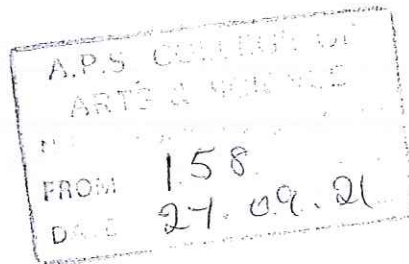 A.P.S COLLEGE OF
ARTS & SCIENCE
FROM 158
DATE 27.09.21